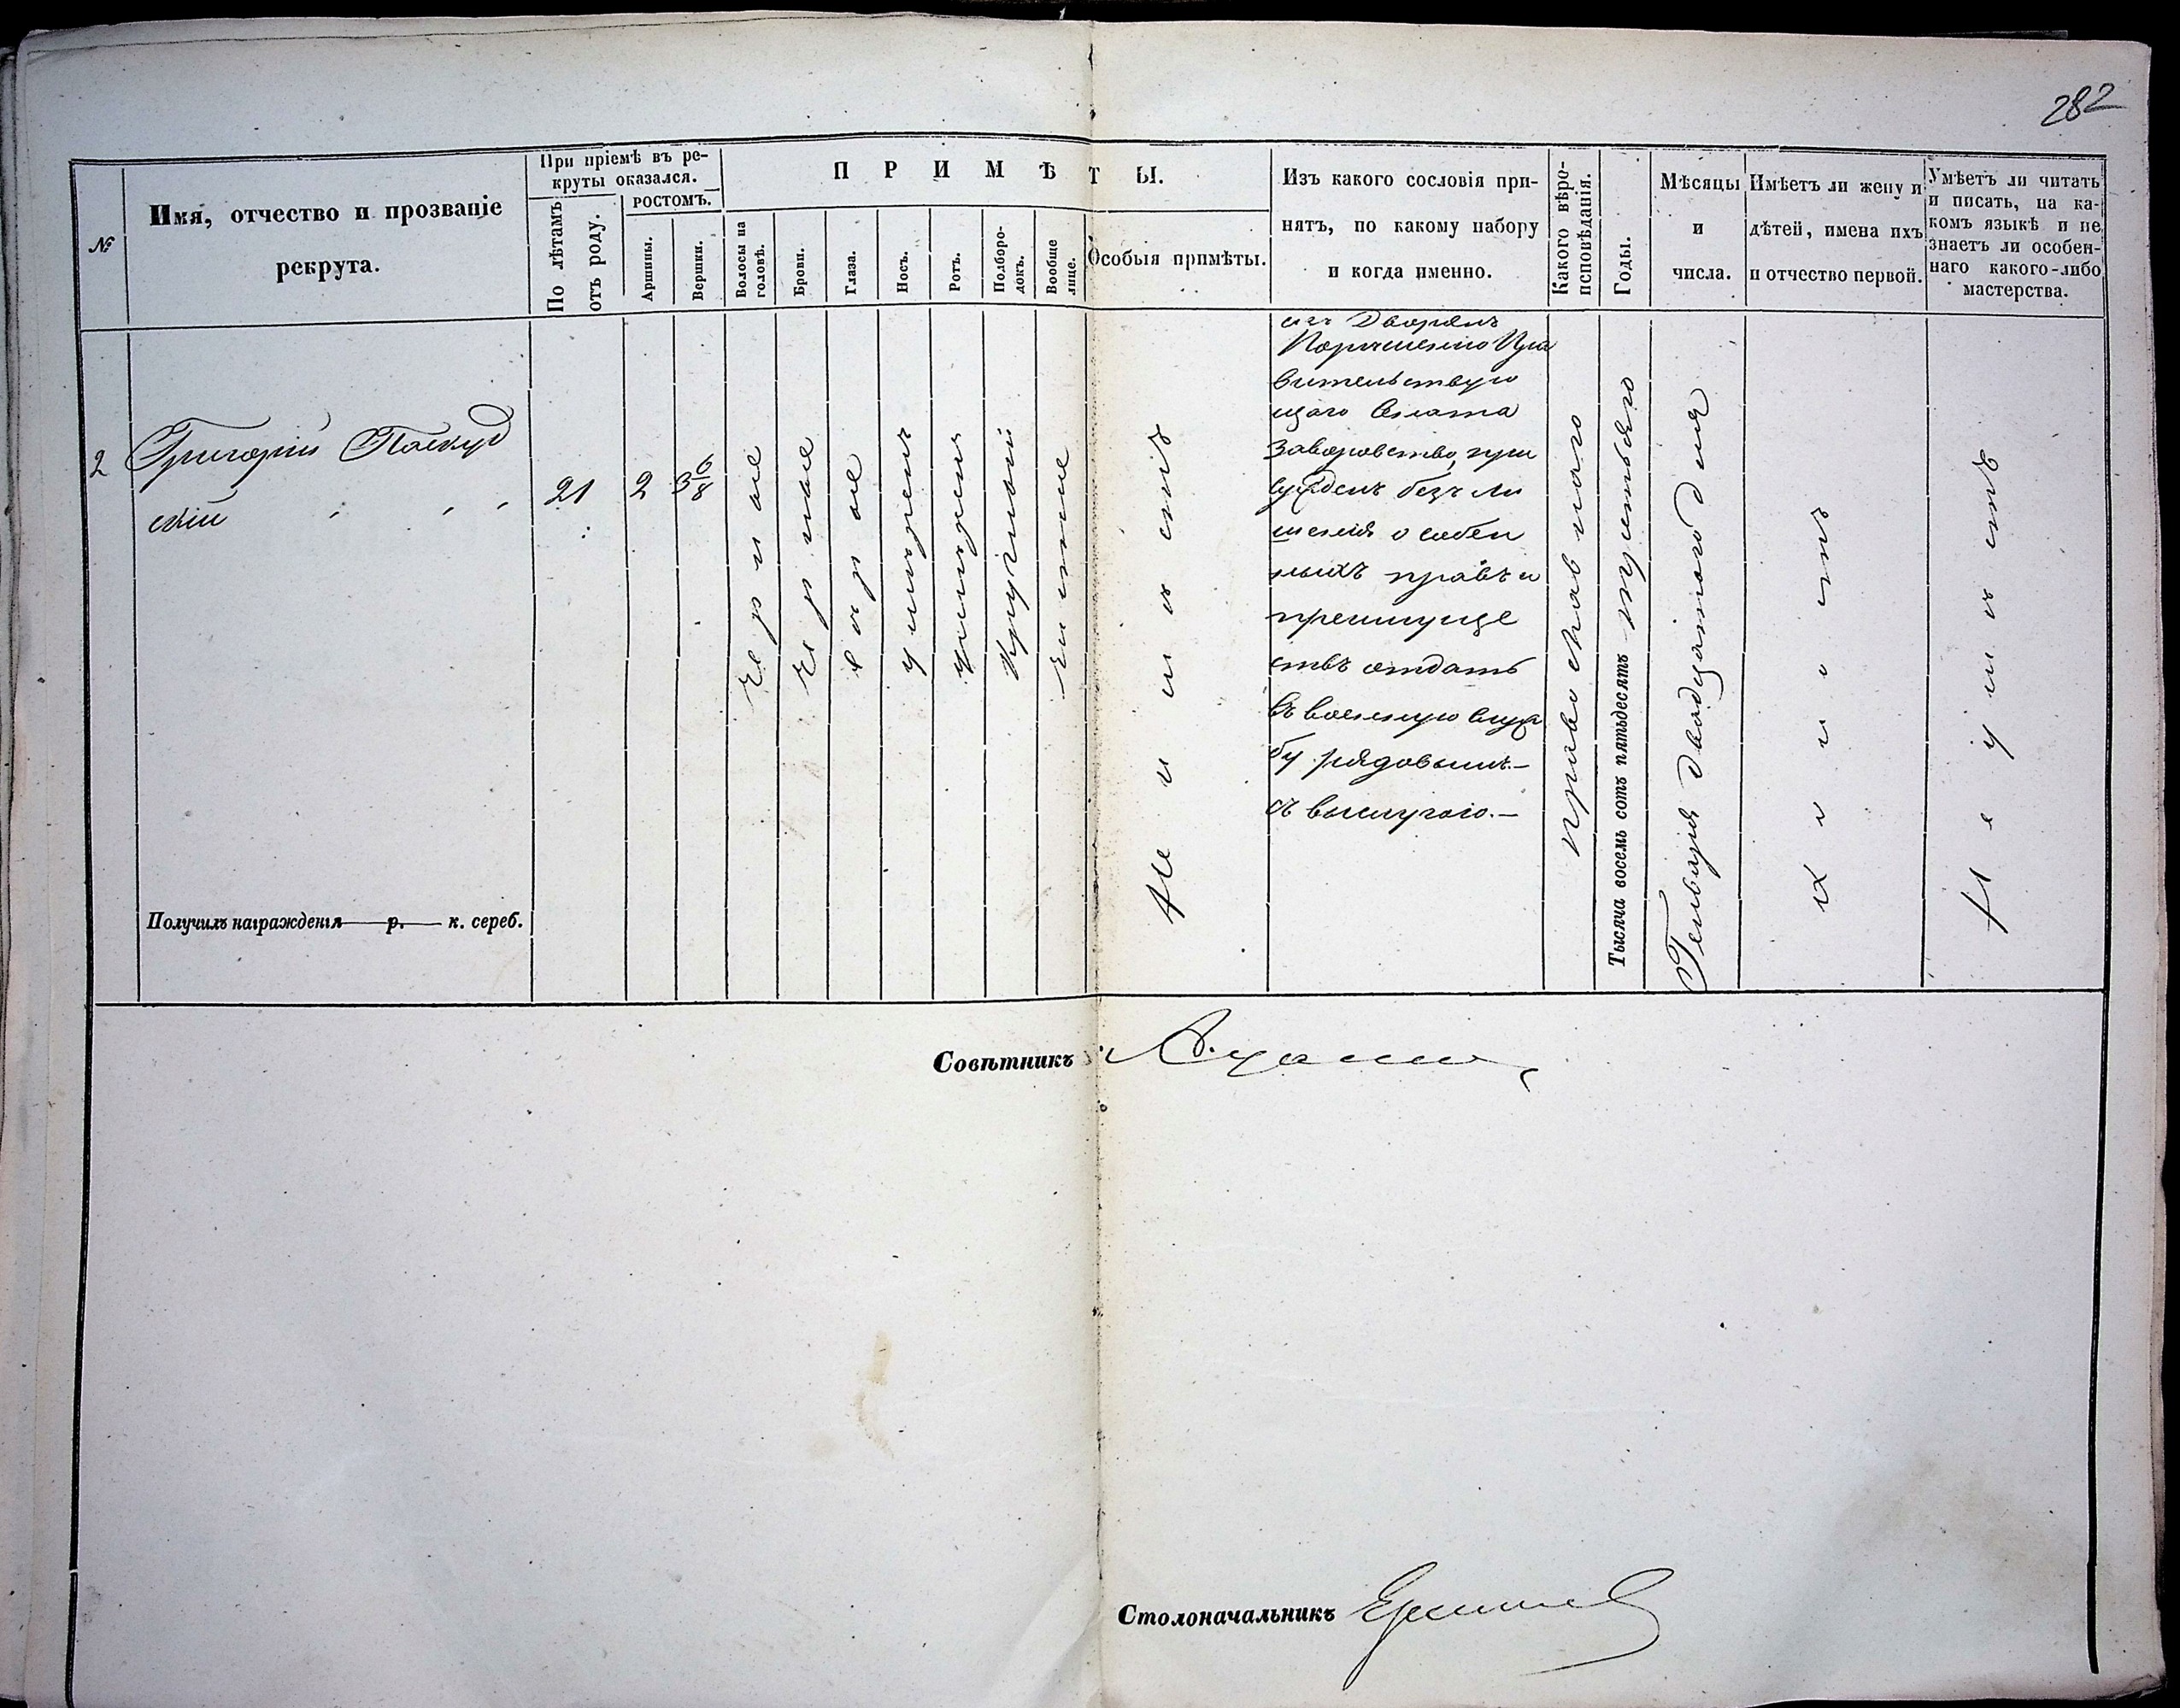 282
№
Имя, отчество и прозваніе
рекрута.
При пріемѣ въ ре-
круты оказался.
По лѣтамъ
отъ роду.
РОСТОМЪ.
Аршины.
Вершки.
ПРИМѢТЫ.
Волосы на
головѣ.
Брови.
Глаза.
Носъ.
Ротъ.
Подборо-
докъ.
Вообще
лице.
Особыя примѣты.
Изъ какого сословія при-
нятъ, по какому набору
и когда именно.
Какого вѣро-
исповѣданія.
Годы.
Мѣсяцы
и
числа.
Имѣетъ ли жену и
дѣтей, имена ихъ
и отчество первой.
Умѣетъ ли читать
и писать, на ка-
комъ языкѣ и не
знаетъ ли особен-
наго какого-либо
мастерства.
2
Григорій Паскуд
скій
21
2
3 6/8
черные
черные
сѣрые
умѣренъ
умѣренъ
круглый
чистое
Не имѣетъ
изъ Дворянъ
По решенію Пра
вительствую
щаго Сената
за воровство, при
сужденъ безъ ли
шенія особен
ныхъ правъ и
преимуще
ствъ отдать
въ военную служ
бу рядовымъ.—
съ выслугою.—
Православнаго
Тысяча восемь сотъ пятьдесятъ третьяго
Генваря двадцатого дня
Холостъ
Не умѣетъ
Получилъ награжденія — р. — к. сереб.
Совѣтникъ
Столоначальникъ